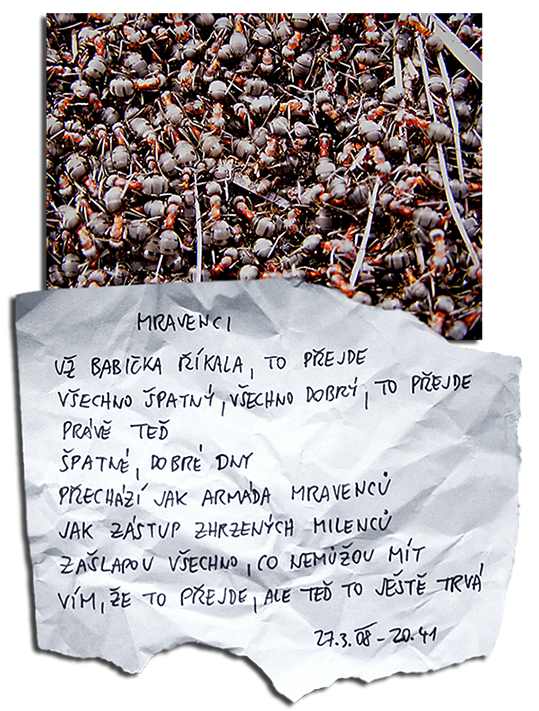 MRAVENCI
UŽ BABIČKA ŘÍKALA, TO PŘEJDE
VŠECHNO ŠPATNÝ, VŠECHNO DOBRÝ, TO PŘEJDE
PRÁVĚ TEĎ
ŠPATNÉ, DOBRÉ DNY
PŘECHÁZÍ JAK ARMÁDA MRAVENCŮ
JAK ZÁSTUP ZHRZENÝCH MILENCŮ
ZAŠLAPOU VŠECHNO, CO NEMŮŽOU MÍT
VÍM, ŽE TO PŘEJDE, ALE TEĎ TO JEŠTĚ TRVÁ
27.3.08 - 20.41